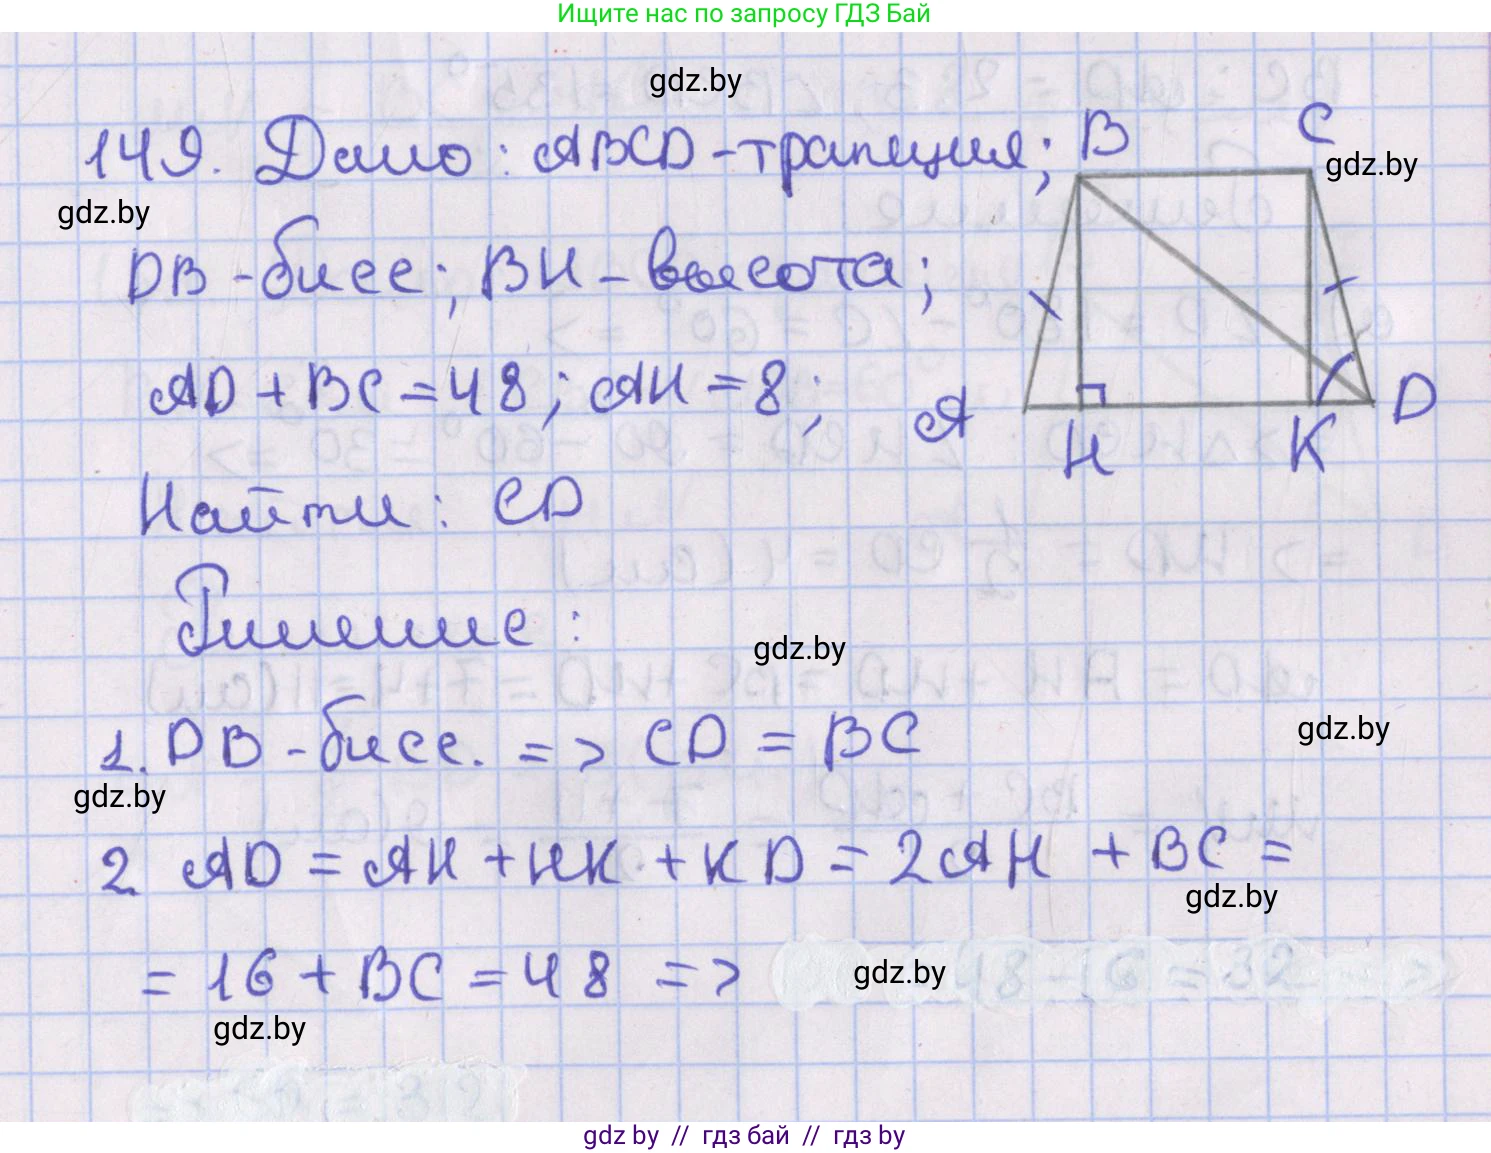 Ищите нас по запросу ГДЗ Бай
gdz.by
149. Дано: ABCD - трапеция;
B C
gdz.by
gdz.by
DB - бисс; BH - высота;
AD + BC = 48; AH = 8;
A H K D
Найти: CD
Решение:
gdz.by
1. DB - бисс. => CD = BC
gdz.by
gdz.by
2 AD = AH + HK + KD = 2AH + BC =
gdz.by
= 16 + BC = 48 =>
gdz.by
48 - 16 = 32
gdz.by
gdz by // гдз бай // гдз by